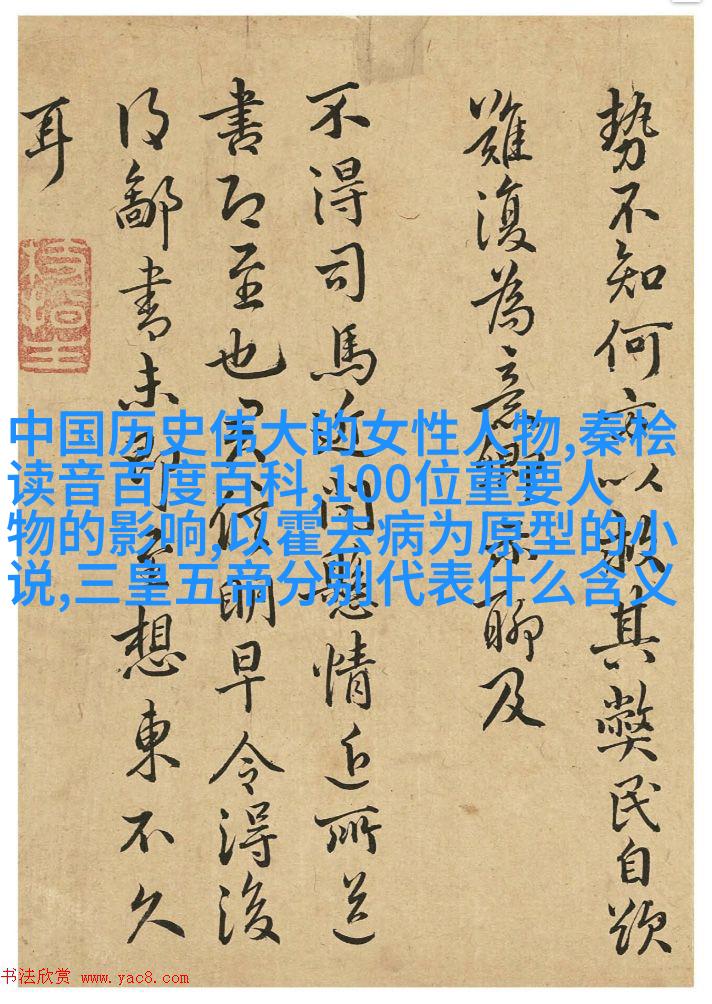 勢不知何方以救其弊民自
難復為意卿示聊及
不得司馬近問懸情近所送
書即至也明早令得後
得鄙書未即至想東不久
耳
中国历史伟大的女性人物,秦桧
读音百度百科,100位重要人
物的影响,以霍去病为原型的小
说,三皇五帝分别代表什么含义
书法欣赏 www.yac8.com